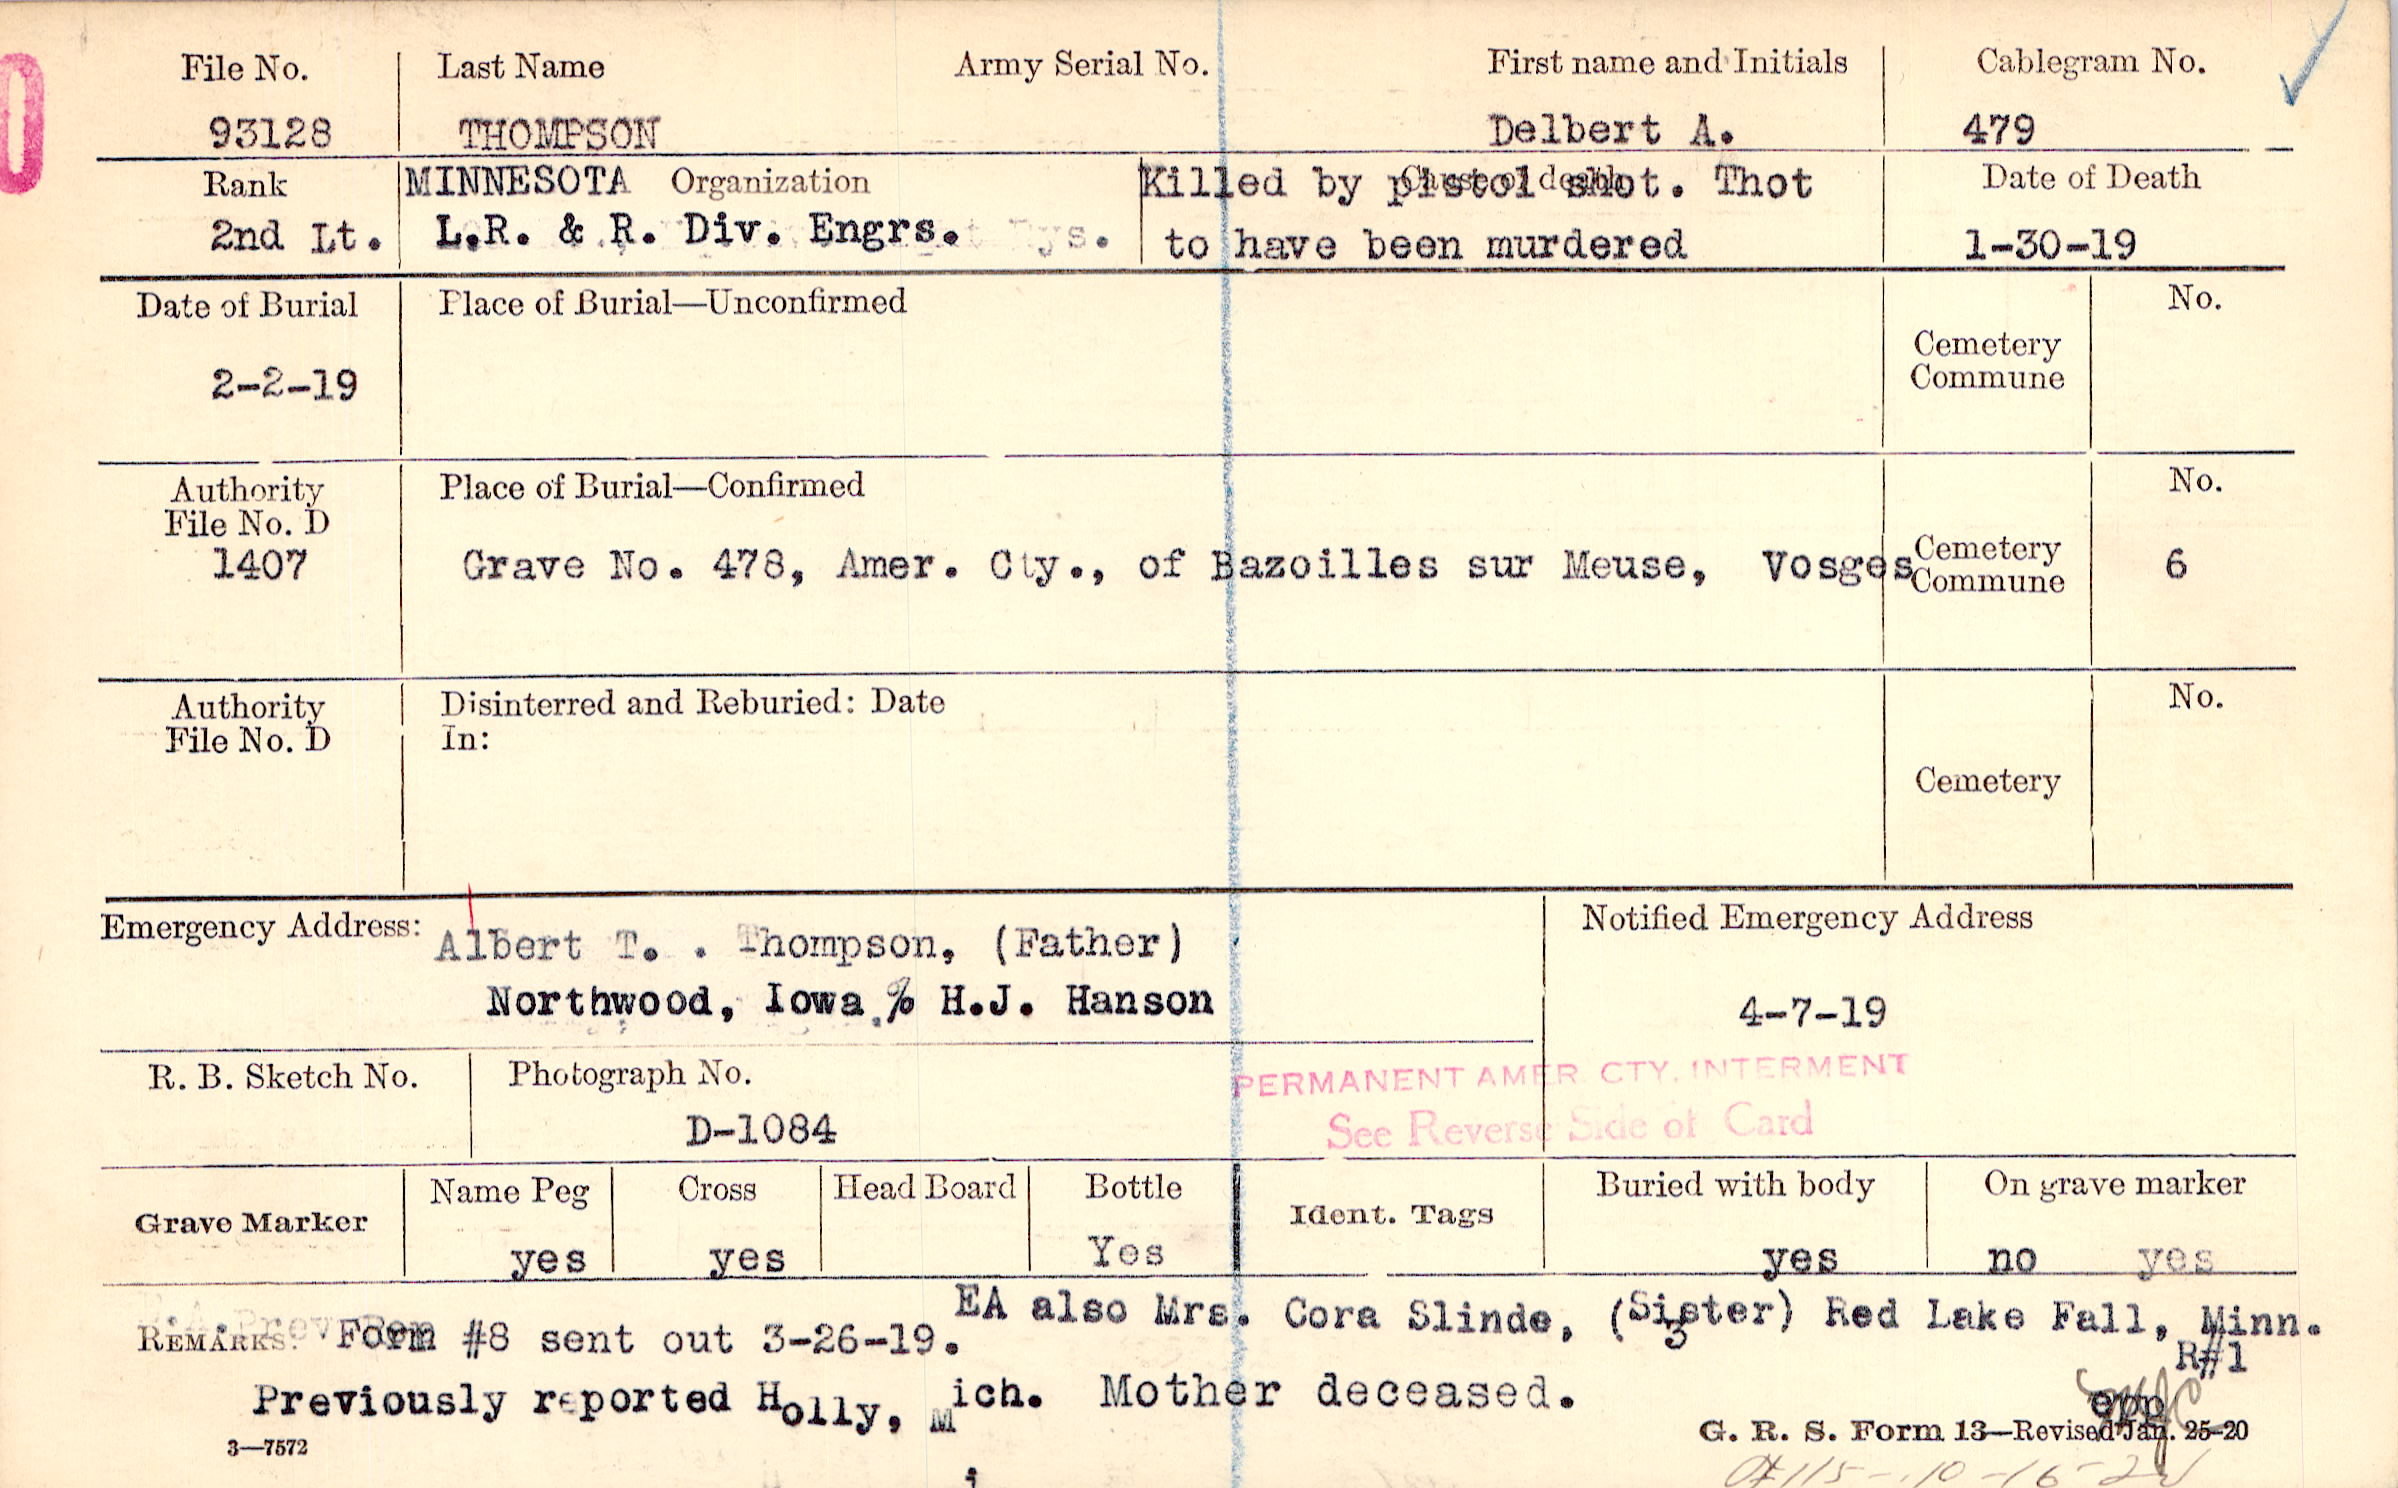 File No. Last Name Army Serial No. First name and Initials Cablegram No.
93128 THOMPSON Delbert A. 479
Rank MINNESOTA Organization Cause of death Date of Death
Killed by pistol shot. Thot
2nd Lt. L.R. & R. Div. Engrs. to have been murdered 1-30-19
Date of Burial Place of Burial—Unconfirmed No.
Cemetery
Commune
2-2-19
Authority Place of Burial—Confirmed No.
File No. D
1407 Grave No. 478, Amer. Cty., of Bazoilles sur Meuse, Vosges Cemetery 6
Commune
Authority Disinterred and Reburied: Date No.
File No. D In:
Cemetery
Emergency Address: Notified Emergency Address
Albert T. . Thompson, (Father)
Northwood, Iowa % H.J. Hanson 4-7-19
R. B. Sketch No. Photograph No. PERMANENT AMER CTY. INTERMENT
D-1084 See Reverse Side of Card
Grave Marker Name Peg Cross Head Board Bottle Ident. Tags Buried with body On grave marker
yes yes Yes yes no yes
EA also Mrs. Cora Slinde, (Sister) Red Lake Fall, Minn.
REMARKS: Form #8 sent out 3-26-19. R#1
Previously reported Holly, Mich. Mother deceased.
3—7572 G. R. S. Form 13—Revised Jan. 25-20